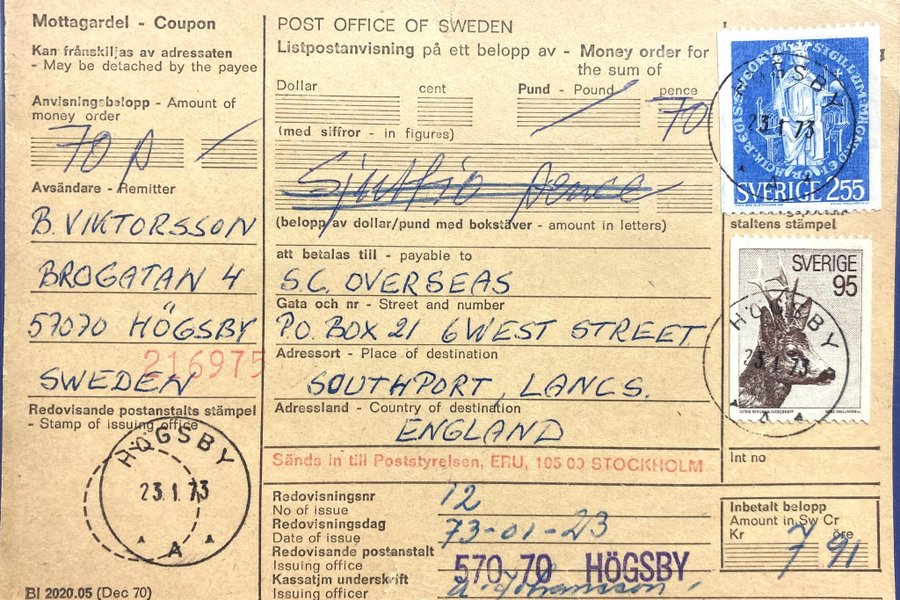 Mottagardel - Coupon
Kan frånskiljas av adressaten
- May be detached by the payee
Anvisningsbelopp - Amount of
money order
70 p
Avsändare - Remitter
B. VIKTORSSON
BROGATAN 4
57070 HÖGSBY
216975
SWEDEN
Redovisande postanstalts stämpel
- Stamp of issuing office
HÖGSBY
23.1.73
A
BI 2020.05 (Dec 70)
POST OFFICE OF SWEDEN
Listpostanvisning på ett belopp av - Money order for
the sum of
Dollar
cent
Pund - Pound
pence
70
(med siffror - in figures)
Sjuttio pence
(belopp av dollar/pund med bokstäver - amount in letters)
att betalas till - payable to
S.C. OVERSEAS
Gata och nr - Street and number
P.O. BOX 21 6 WEST STREET
Adressort - Place of destination
SOUTHPORT, LANCS.
Adressland - Country of destination
ENGLAND
Sänds in till Poststyrelsen, ERU, 105 00 STOCKHOLM
Redovisningsnr
No of issue
12
Redovisningsdag
Date of issue
73-01-23
Redovisande postanstalt
Issuing office
570 70 HÖGSBY
Kassatjm underskrift
Issuing officer
Johansson
SVERIGE 255
HÖGSBY
23.1.73
staltens stämpel
SVERIGE
95
HÖGSBY
23.1.73
A
Int no
Inbetalt belopp
Amount in Sw Cr
Kr
öre
7 91